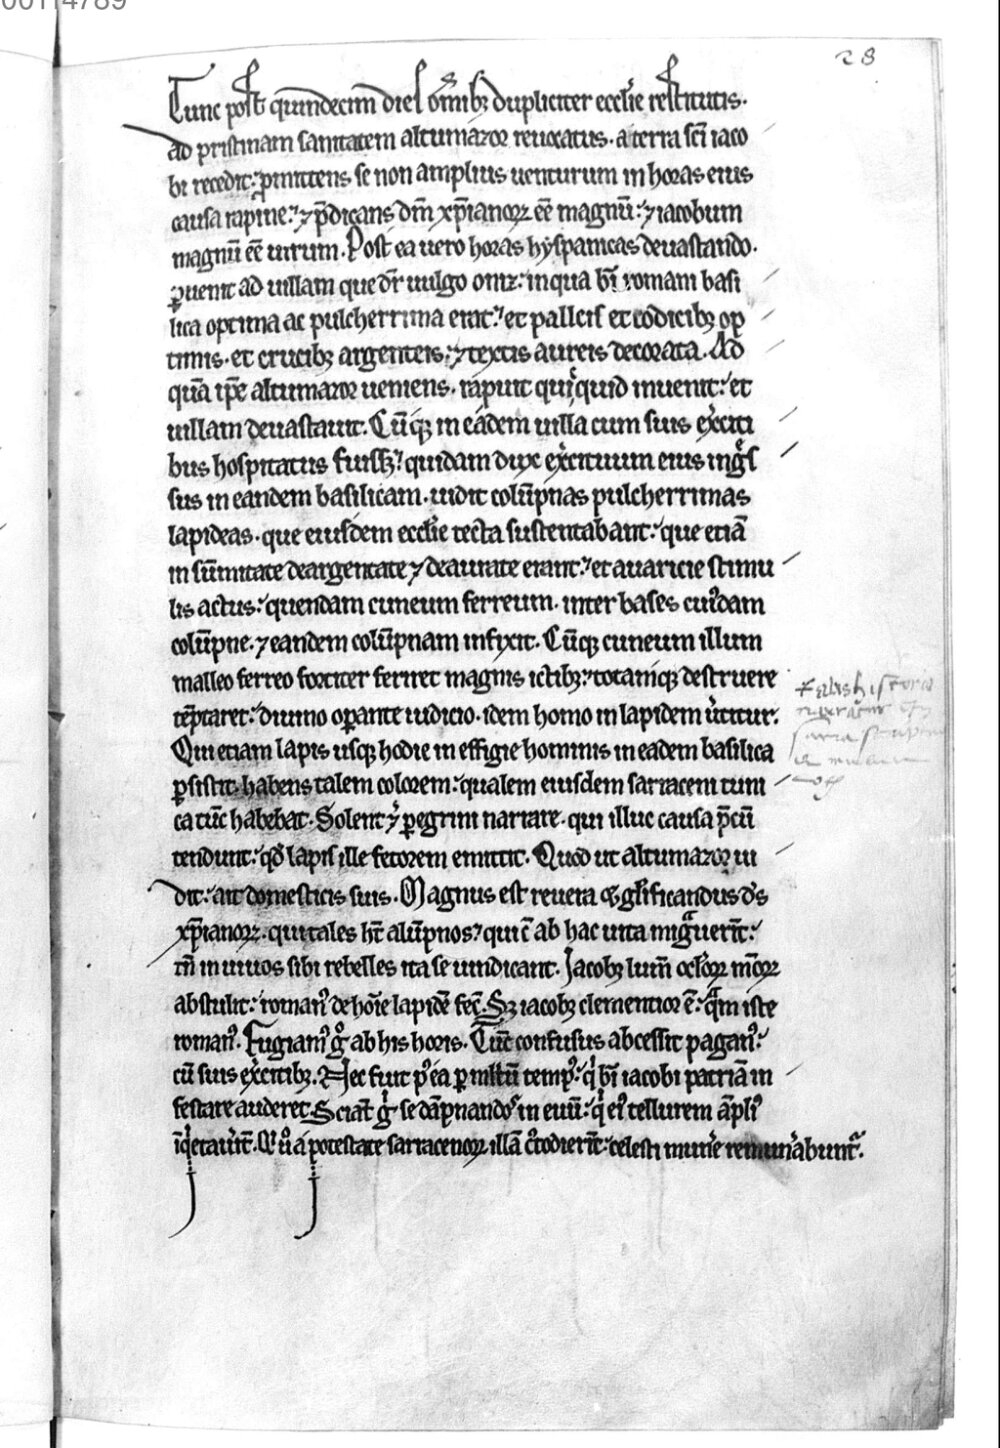 00114789
28
Tunc post quindecim dies om̅ibꝫ dupliciter eccl̅ie restitutis.
ad pristinam sanitatem altumaior reuocatus. a terra sc̅i iaco
bi recedit: ꝓmittens se non amplius uenturum in horas eius
causa rapine: ⁊ p̅dicans dm̅ xp̅ianoꝝ ee̅ magnu̅: ⁊ iacobum
magnu̅ ee̅ uirum. Post ea uero horas hyspanicas deuastando.
ꝑuenit ad uillam que dr̅ uulgo orniz: in qua bi̅ romani basi
lica optima ac pulcherrima erat: et palleis et codicibꝫ op
timis. et crucibꝫ argenteis: ⁊ textis aureis decorata. Ad
qua̅ ip̅e altumaior ueniens. rapuit quicquid inuenit: et
uillam deuastauit. Cu̅qꝫ in eadem uilla cum suis ex̉citi
bus hospitatus fuissꝫ: quidam dux ex̉cituum eius ingͤs
sus in eandem basilicam. uidit colu̅pnas pulcherrimas
lapideas. que eiusdem eccl̅ie tecta sustentabant: que etia̅
in su̅mitate deargentate ⁊ deaurate erant: et auaricie stimu
lis actus: quendam cuneum ferreum. inter bases cuiꝰdam
colu̅pne. ⁊ eandem colu̅pnam infixit. Cu̅qꝫ cuneum illum
malleo ferreo fortiter feriret magnis ictibꝫ: totamqꝫ destruere
te̅ptaret: diuino oꝑante iudicio. idem homo in lapidem u̓titur.
Qui etiam lapis usqꝫ hodie in effigie hominis in eadem basilica
ꝑsistit habens talem colorem: qualem eiusdem sarraceni tuni
ca tu̅c habebat. Solent ⁊ ꝑegrini narrare. qui illuc causa p̅cu̅
tendunt: qd̅ lapis ille fetorem emittit. Quod ut altumaior ui
dit: ait domesticis suis. Magnus est reuera ⁊ gl̅ificandus ds̅
xp̅ianoꝝ. qui tales ht̅ alu̅pnos: qui c̅ ab hac uita migͣueri̅t:
tn̅ in uiuos sibi rebelles ita se uindicant. Iacobꝫ lum̅ oclo̅ꝝ m̅oꝝ
abstulit: romanꝰ de ho̅ie lapide̅ fec̅. Sꝫ iacobꝫ clementior e̅: qͣm iste
romanꝰ. Fugiamꝰ gͦ ab his horis. Tu̅c confusus abcessit paganꝰ:
cu̅ suis ex̉citibꝫ. Nec fuit pꝰea ꝑ mltu̅ tempꝰ: qͥ bi̅ iacobi patria̅ in
festare auderet. Sciat̅ gͥ se da̅pnandoꝰ in euu̅: qͥ eiꝰ tellurem a̅pliꝰ
iqͥetau̓i̅t. Qͥ uͦ a potestate sarracenoꝝ illa̅ c̉todieri̅t: celesti mun̓e remun̓abunt̃.